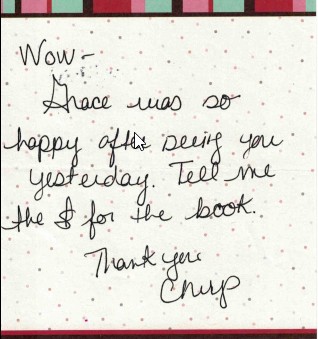 Wow-
Grace was so
happy after seeing you
yesterday. Tell me
the $ for the book.
Thank you